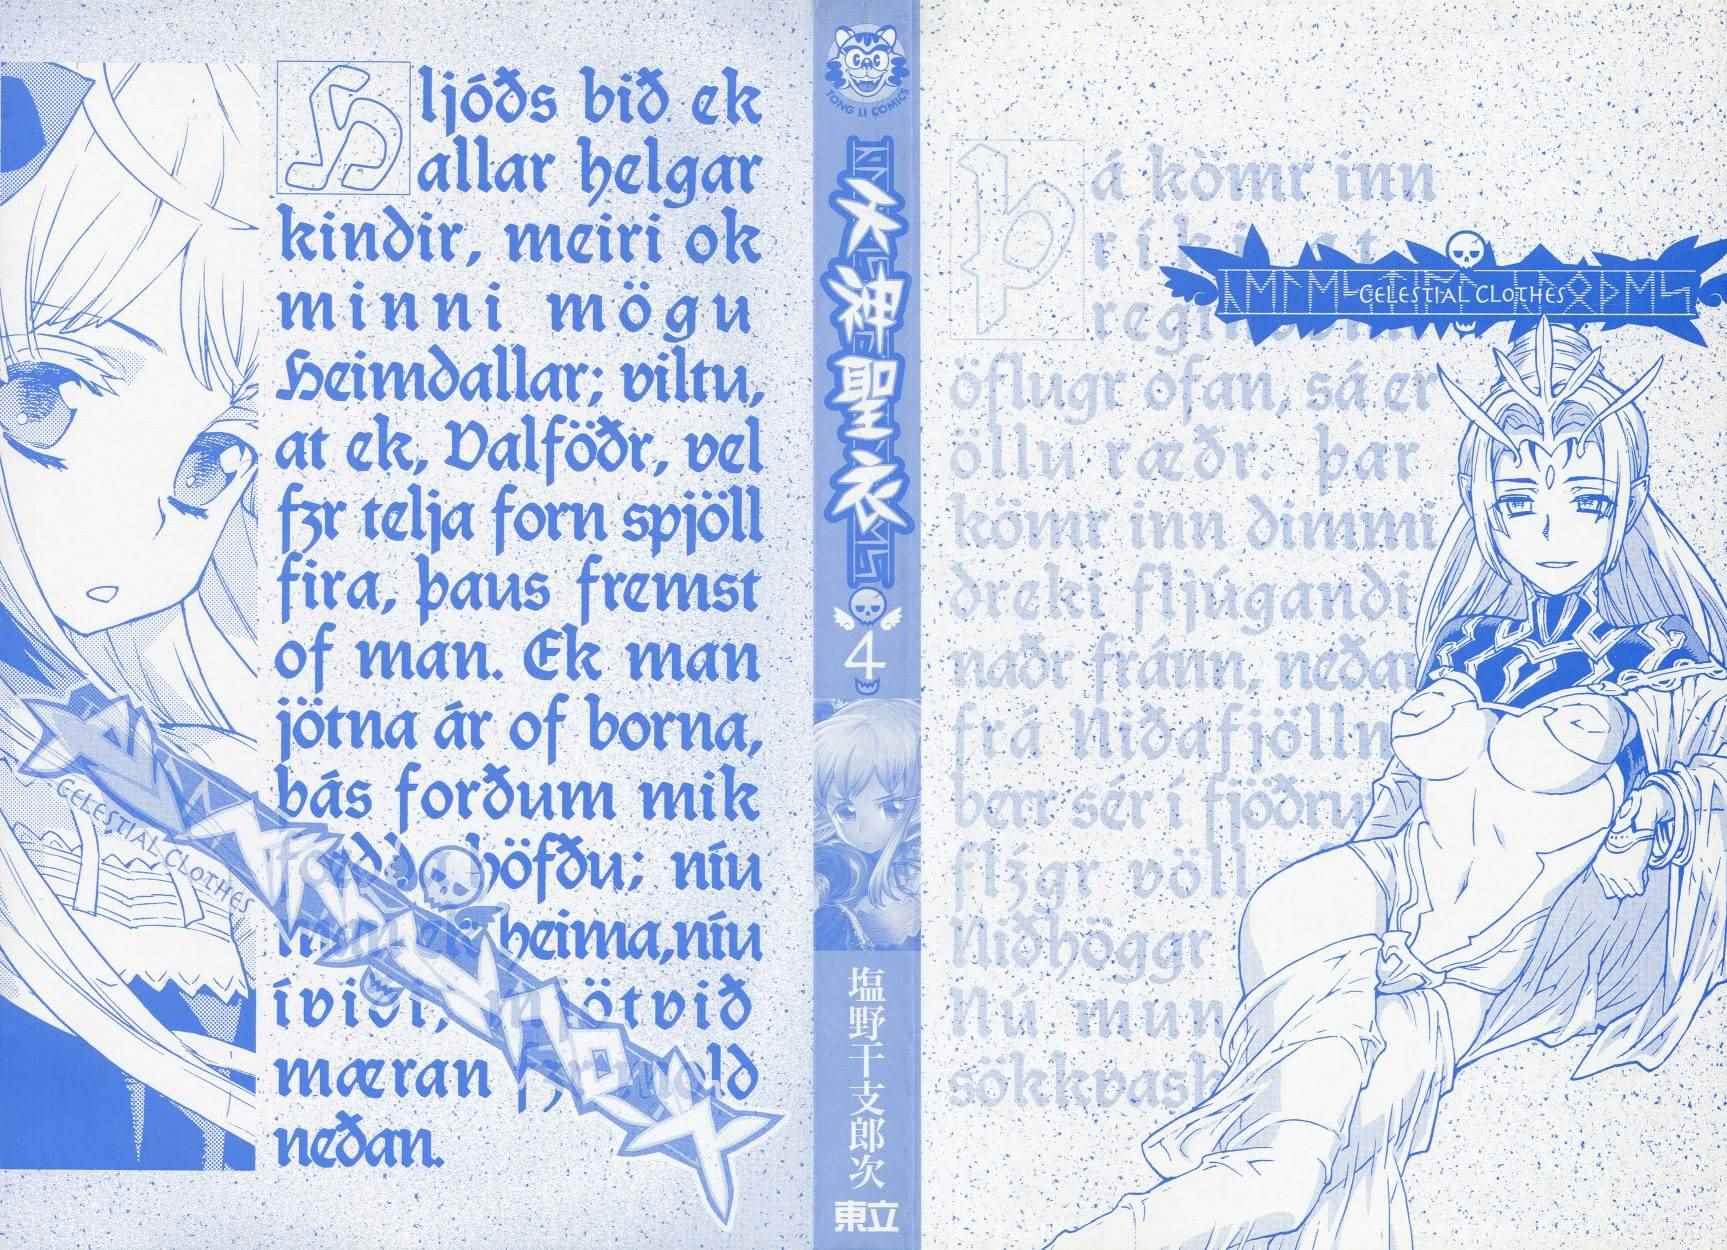 Hljóðs bið ek
allar helgar
kindir, meiri ok
minni mögu
Heimdallar; viltu,
at ek, Valföðr, vel
fyr telja forn spjöll
fira, þaus fremst
of man. Ek man
jötna ár of borna,
þás forðum mik
höfðu; níu
heima, níu
mjötvið
mæran
neðan.
CELESTIAL CLOTHES
TONG LI COMICS
天神聖衣
4
塩野干支郎次
東立
Þá kömr inn
öflugr ofan, sá er
öllu ræðr. þar
kömr inn dimmi
dreki fljúgandi
naðr fránn, neðan
frá Niðafjöllum
berr sér í fjöðrum
flýgr völl
Niðhöggr
Nú mun
sökkvask
CELESTIAL CLOTHES